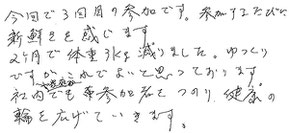 今回で3回目の参加です。参加するたびに
新鮮さを感じます
2ヶ月で体重3kgも減りました。ゆっくり
ですがこれでよいと思っております。
社内でも参加者をつのり、健康の
輪を広げていきます。